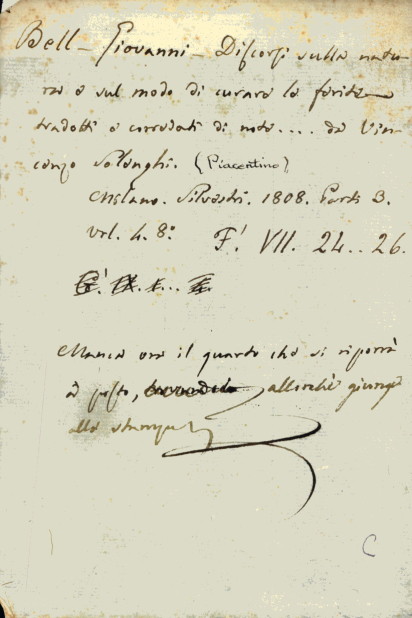 Bell - Giovanni - Discorsi sulla natu
ra e sul modo di curare le ferite
tradotti e corredati di note.... da Vin
cenzo Solenghi. (Piacentino)
Milano. Silvestri. 1808. Parti 3.
vol. 4. 8º F! VII. 24.. 26.
Manca ora il quarto che si riporrà
a posto, allorchè giunga
alla stampa
C